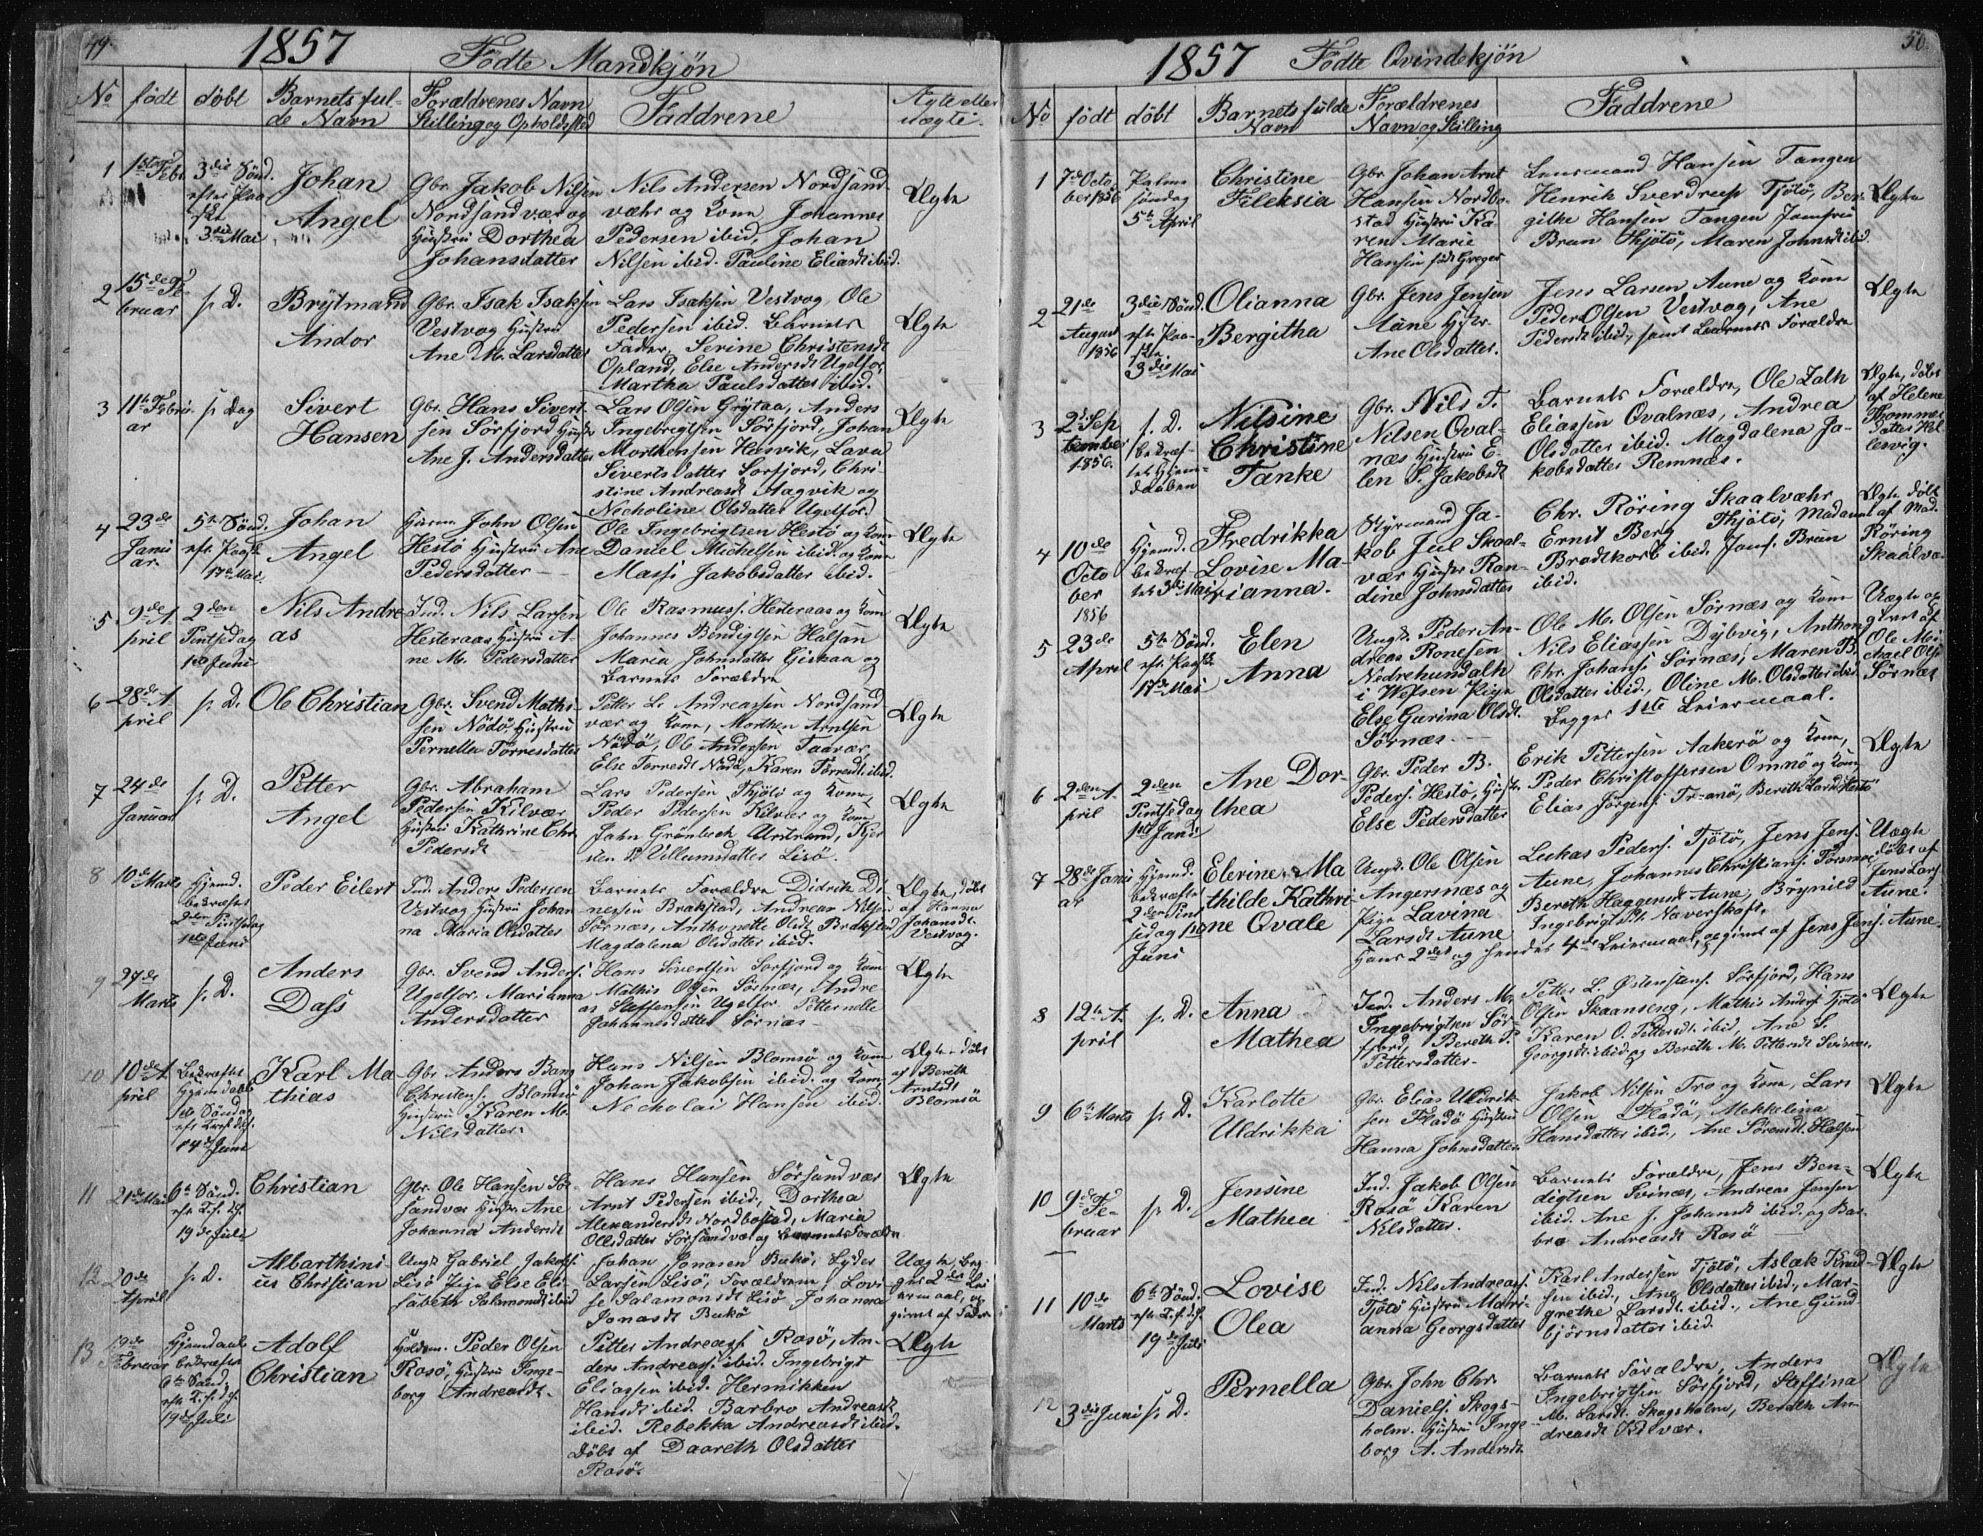 49.
1857 Fødte Mandkjøn
No
født
döbt
Barnets ful-
de Navn
Forældrenes Navn
Stilling og Opholdssted
Faddrene
Ægte eller
uægte.
1
1ste Febr
3die Sönd.
efter Paa
ske
3die Mai
Johan
Angel
Gbr. Jakob Nilsen
Nordsandvær og
Hustru Dorthea
Johansdatter
Nils Andersen Nordsand
væhr og Kone, Johannes
Pedersen ibid, Johan
Nilsen ibid. Pauline Eliasdt ibid.
Ægte
2
15de Fe
bruar
s. D.
Brÿtmand
Andor
Gbr. Isak Isaksen
Vestvog Hustru
Ane M. Larsdatter
Lars Isaksen Vestvog Ole
Pedersen ibid. Barnets
Fader, Serine Christensdt
Opland, Else Andersdt Ugelfor,
Martha Paulsdatter ibid.
Ægte
3
11te Febru
ar
s. Dag
Sivert
Hansen
Gbr. Hans Sivert
sen Sörfjord Hustr
Ane J. Andersdatter
Lars Olsen Grÿtaa, Anders
Ingebrigtsen Sörfjord, Johan
Morthensen Hasvik, Lava
Siverts Datter Sorfjord, Chri
stine Andreasdt Aagvik og
Nicholine Olsdatter Ugelfor.
Ægte
4
23de
Janu
ar
5te Sönd.
eft. Paaske
17de Mai
Johan
Angel
Huusm. John Olsen
Hestö Hustru Ane
Pedersdatter
Ole Ingebrigtsen Hestö og Kone
Daniel Michelsen ibid. og Kone
Massi Jakobsdatter ibid.
Ægte
5
9de A
pril
2den
Pintsedag
1ste Juni
Nils Andre
as
Ind. Nils Larsen
Hesteraas Hustru A-
ne M. Pedersdatter
Ole Rasmuss. Hesteraas og Kone
Johannes Bendigtsen Halsan
Maria Johnsdatter Ejeskaa og
Barnets Forældre
Ægte
6
28de A
pril
s. D.
Ole Christian
Gbr. Svend Mathi-
sen Nödö, Hustru
Pernella Tørresdatter
Petter L. Andreassen Nordsand
vær og Kone, Morthen Arntsen
Nödö, Ole Andersen Taavær
Else Torresdt Nödö, Karen Torresdt ibid.
Ægte
7
24de
Januar
s. D.
Petter
Angel
Gbr. Abraham
Pedersen Kilvær
Hustru Kathrine Chr.
Pedersdt
Lars Pedersen Thjötö og Kone,
Peder Pedersen Kilvær og Kone
Jahn Grönbech Urstrand, Kjer
sten B Villumsdatter Lisö.
Ægte
8
10de Marts
Hjemd.
bekræftet
2den Pintsedag
1ste Juni
Peder Eilert
Ind. Anders Pedersen
Vestvog Hustru Johan
na Maria Olsdatter
Barnets Forældre Didrik Di
nessen Brakstad, Andreas Nilsen
Sørnæs, Anthonette Olsdt Brakstad
Magdalena Olsdatter ibid.
Ægte, döbt
af Hanna
Johansdt.
Vestvog.
9
27de
Marts
s. D.
Anders
Dass
Gbr. Svend Anders.
Ugelfor. Marianna
Andersdatter
Hans Sivertsen Sorfjord og Kone
Mathis Olsen Sörnæs, Andre
as Steffensen Ugelfor. Petternelle
Johannesdatter Sørnæs
Ægte
10
10de A
pril
Bekræftet
Hjemdaab
1ste Søndag
eft. Tref. d.f.
14de Juni
Karl Ma
thias
Gbr. Anders Bang
Christens. Blomsö
Hustru Karen M.
Nilsdatter
Hans Nilsen Blomsö og Kone
Johan Jakobsen ibid. og Kone
Necholai Hansen ibid.
Ægte döbt
af Berith
Arntsdt
Blomsö
11
21de Mai
6te Sönd.
eft. T.f.d.f.
19de Juli
Christian
Gbr. Ole Hansen Sör
sandvær Hustr. Ane
Johanna Andersdt
Hans Hansen Sörsandvær
Arnt Pedersen ibid, Dorthea
Alexandersdt Nordbostad, Maria
Olsdatter Sörsandvær og Barnets Foræld
Ægte
12
20de
April
s. D.
Albarthini
us Christian
Ungk. Gabriel Jakobs.
Lisö Pige Else Eli-
sabeth Salamonsdt ibid
Johan Jonasen Bukö, Lyder
Larsen Lisö, Forældrene, Lovi-
se Salamonsdt Lisö Johanna
Jonasdt Bukö
Uægte, Beg
ges 2det Lei
ermaal, op
givet af Fader
13
19de
Februar
Hjemdaab
bekræftet
6te Sønd.
eft. T. f. d. f.
19de Juli
Adolf
Christian
Husm. Peder Olsen
Rosö, Hustru Inge-
borg Andreasdt.
Petter Andreass. Rosö, An-
ders Andreass. ibid. Ingebrigt
Eliassen ibid. Hermikken
Hansdt ibid. Barbro Andreasdt
ibid. Rebekka Andreasdt ibid.
Döbt af Daareth Olsdatter
Rosö.
Ægte
50.
1857 Fødte Qvindekjön
No
født
döbt
Barnets fulde
Navn
Forældrenes
Navn og Stilling
Faddrene
1
7de Octo
ber 1856
Palme
søndag
5te April
Christine
Feleksia
Gbr. Johan Arnt
Hansen Nordbo-
stad Hustru Ka-
ren Marie
Hansen født Greger
Lensmand Hansen Tangen
Henrik Sverdrup Tjötö, Ber
gitke Hansen Tangen Jomfru
Brun Thjötö, Maren Johnsdt ibid.
Ægte
2
21de
August
1856
3die Sönd.
eft. Paa-
ske
3die Mai
Olianna
Bergitha
Gbr. Jens Jensen
Aune Hustr.
Ane Olsdatter.
Jens Larsen Aune og Kone
Peder Olsen Vestvog, Ane
Pedersdt ibid, samt Barnets Forældre
Ægte
3
2de Sep
tember
1856
s. D.
bekræf-
tet Hjem-
daaben
Nilsine
Christine
Tanke
Gbr. Nils T.
Nilsen Qval-
næs Hustru E-
len S. Jakobsdt
Barnets Forældre, Ole Zakh
Eliassen Qvalnæs, Andrea
Olsdatter ibid. Magdalena Ja-
kobsdatter Remnæs.
Ægte, döbt
af Helene
Thommes
datter Hol
lesvig.
4
10de
Octo
ber
1856
Hjemd.
bekræf-
tet 3die Mai
Fredrikka
Lovise Ma-
rianna.
Styrmand Ja-
kob Jul Skaal-
vær Hustr Ran-
dine Johnsdatter
Chr. Röring Skaalvæhr
Ernst Berg Thjötö, Madame
Brodtkorb ibid. Jomf. Brun
ibid.
Ægte döbt
af Mad.
Röring
Skaalvæ
5
23de
April
5te Sönd.
eft. Paaske
17de Mai
Elen
Anna
Ungk. Peder An-
dreas Ronesen
Nedrehundalh
i Wefsen Pige
Else Gurina Olsdt.
Sørnæs
Ole M. Olsen Sørnæs og Kone
Nils Eliassen Dÿbvig, Anthon
Chr. Johans. Sørnæs, Maren B.
Olsdatter ibid., Oline M. Olsdatter ibid.
Begges 1ste Leiermaal.
Uægte op
givet af
Ole Mi-
chael Olse
Sørnæs
6
2den A
pril
2den
Pintsedag
1ste Juni
Ane Dor-
thea
Gbr. Peder B.
Peders. Hestö, Hustr
Else Pedersdatter
Erik Pettersen Aakerö og Kone,
Peder Christoffersen Omnö og Kone
Elias Jörgens. Tranö, Berith Larsdt Hestö
Ægte
7
28de Janu
ar
Hjemd.
bekræftet
2den Pint
sedag 1ste
Juni
Elerine, Ma
thilde Kathri
ne Qvale
Ungk. Ole Olsen
Angersnæs og
Pige Lavina
Larsdt Aune
Hans 2det og hendes 4de Leiermaal, opgivet af Jens Jens. Aune
Lukas Peders. Tjötö, Jens Jens.
Aune, Johannes Christians. Forsmoe
Bereth Haggensdt Aune, Brÿnild
Ingebrigtsdt. Naverskaft.
Uægte
döbt af
Jens Lars.
Aune.
8
12te A
pril
s. D.
Anna
Mathea
Ind. Anders M.
Ingebrigtsen Sör-
fjord. Bereth P.
Pettersdatter
Petter L. Østenstens. Sörfjord, Hans
Olsen Skaanseng, Mathis Anders. Tjötö
Karen O. Pettersdt ibid, Ane S.
Georgsdt ibid og Bereth M. Pettersdt
Ægte
9
6te Marts
s. D.
Karlotte
Uldrikka
Gbr. Elias Uldrik-
sen Fladö Hustru
Hanna Johnsdatter
Jakob Nilsen Tro og Kone, Lars
Olsen Flödö, Mekkelina
Hansdatter ibid., Ane Sörensdt. Halsen
Ægte
10
9de Fe-
bruar
s. D.
Jensine
Mathea
Ind. Jakob Olsen
Rosö Karen
Nilsdatter.
Barnets Forældre, Jens Ben-
digtsen Svinæs, Andreas Jensen
ibid. Ane J. Johansdt ibid. og Bar-
bra Andreasdt Rosö
Ægte
11
10de
Marts
6te Sönd.
eft. T. f. d. f.
19de Juli
Lovise
Olea
Ind. Nils Andreass.
Tjötö Hustru Mari-
anna Georgsdatter
Karl Andersen Tjötö, Aslak Knud-
sen ibid., Ane Olsdatter ibid., Mar-
grethe Larsdt. ibid., Ane Gund-
björnsdatter ibid.
Ægte
12
3die Juni
s. D.
Pernella
Gbr. John Chr.
Daniels. Skogs-
holm. Hustru Inge
borg A. Andersdt
Barnets Forældre, Anders
Ingebrigtsen Sörfjord, Steffina
M. Larsdt. Skogsholm, Berath An-
dreasdt Kilvær.
Ægte